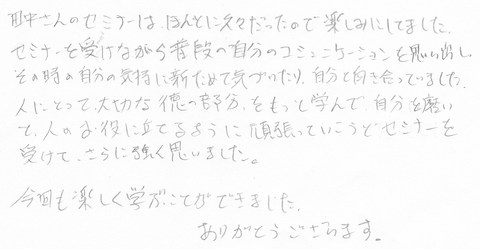 田中さんのセミナーは、ほんとに久々だったので楽しみにしてました。
セミナーを受けながら普段の自分のコミュニケーションを思い出し、
その時の自分の気持に新ためて気づいたり、自分と向き合っていました。
人にとって大切な徳の部分をもっと学んで、自分を磨い
て、人のお役に立てるように頑張っていこうとセミナーを
受けて、さらに強く思いました。
今回も楽しく学ぶことができました。
ありがとうございます。